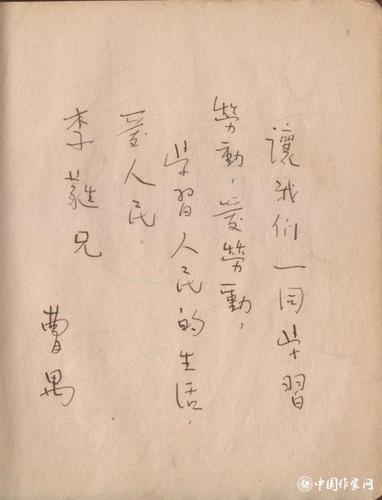 讓我们一同学習
勞動，爱勞動，
学習人民的生活，
爱人民。
李蕤兄
曹禺
中国作家网